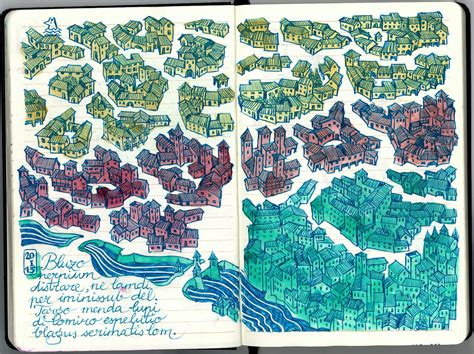 20
I
15
Bluzo
nornium
distrare, ne lamdi
per iminissub del.
Tarso menda lupi
di lomiro espelutio
blagus serimatis lom.